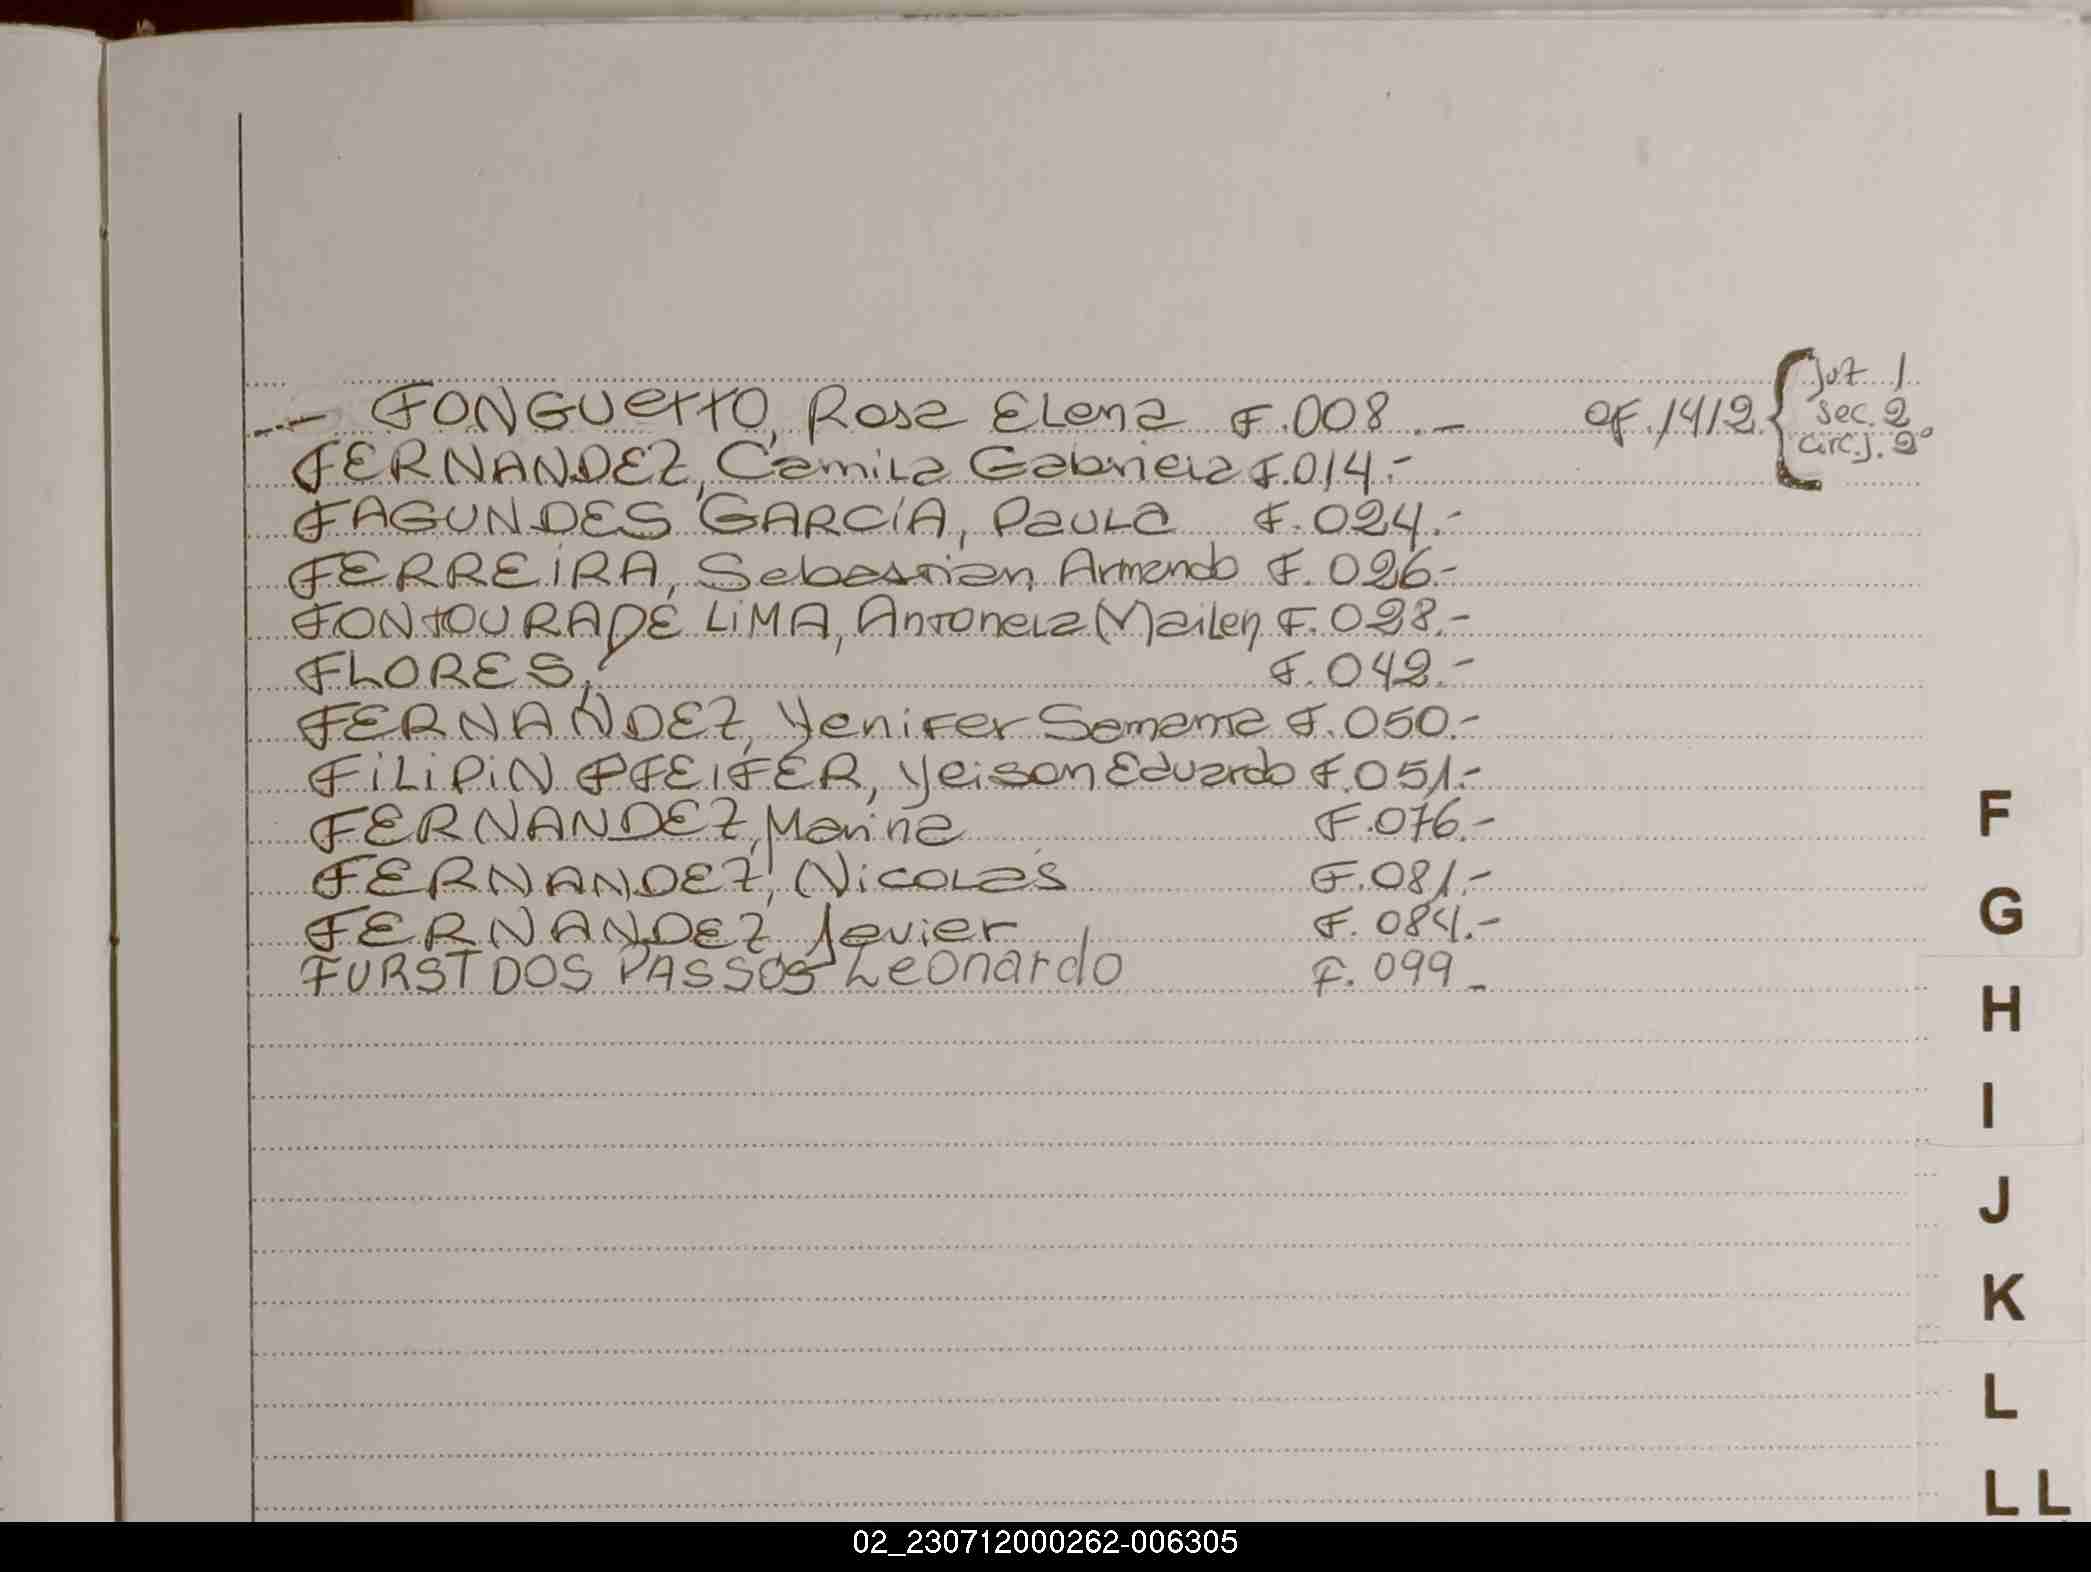 --- FONGUETTO, Rosa Elena F.008.- OF.1412 { juz 1
sec. 2
circ.j. 2°
FERNANDEZ, Camila Gabriela F.014.-
FAGUNDES GARCÍA, Paula F.024.-
FERREIRA, Sebastian Armando F.026.-
FONTOURA DE LIMA, Antonela Mailen F.028.-
FLORES, F.042.-
FERNANDEZ, Yenifer Samanta F.050.-
FILIPIN PFEIFER, Yeison Eduardo F.051.-
FERNANDEZ, Marina F.076.-
FERNANDEZ, Nicolas F.081.-
FERNANDEZ, Javier F.084.-
FURST DOS PASSOS Leonardo F.099-
F
G
H
I
J
K
L
LL
02_230712000262-006305